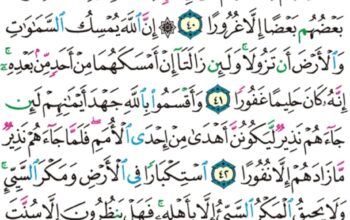 بَعْضُهُم بَعْضًا إِلَّا غُرُورًا ٤٠ ۞ إِنَّ ٱللَّهَ يُمْسِكُ ٱلسَّمَٰوَٰتِ
وَٱلْأَرْضَ أَن تَزُولَا ۚ وَلَئِن زَالَتَآ إِنْ أَمْسَكَهُمَا مِنْ أَحَدٍ مِّنۢ بَعْدِهِۦٓ ۚ
إِنَّهُۥ كَانَ حَلِيمًا غَفُورًا ٤١ وَأَقْسَمُوا۟ بِٱللَّهِ جَهْدَ أَيْمَٰنِهِمْ لَئِن
جَآءَهُمْ نَذِيرٌ لَّيَكُونُنَّ أَهْدَىٰ مِنْ إِحْدَى ٱلْأُمَمِ ۖ فَلَمَّا جَآءَهُمْ نَذِيرٌ
مَّا زَادَهُمْ إِلَّا نُفُورًا ٤٢ ٱسْتِكْبَارًا فِى ٱلْأَرْضِ وَمَكْرَ ٱلسَّيِّئِ ۚ
وَلَا يَحِيقُ ٱلْمَكْرُ ٱلسَّيِّئُ إِلَّا بِأَهْلِهِۦ ۚ فَهَلْ يَنظُرُونَ إِلَّا سُنَّتَ